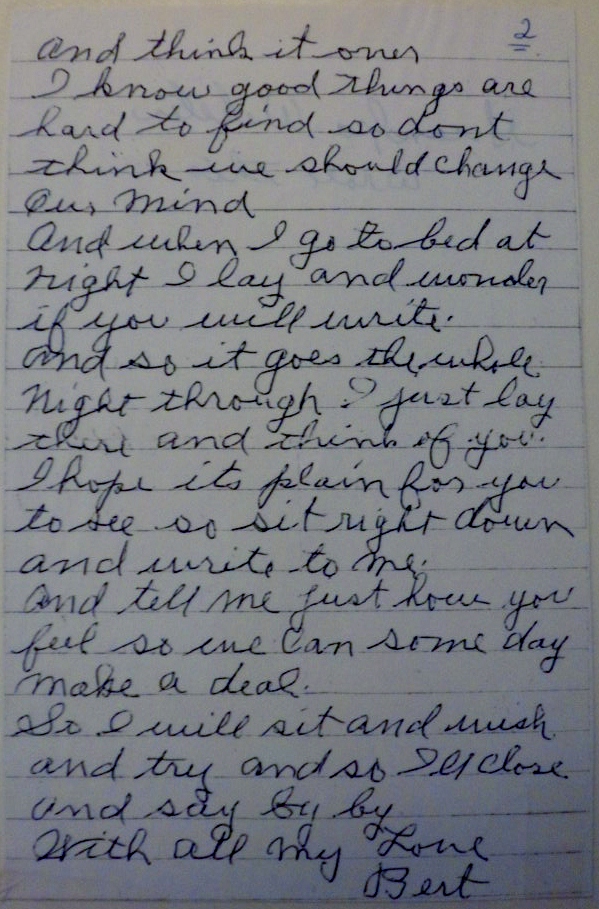 2
And think it over
I know good things are
hard to find so dont
think we should change
Our Mind
And when I go to bed at
night I lay and wonder
if you will write.
And so it goes the whole
Night through I just lay
there and think of you.
I hope its plain for you
to see so sit right down
and write to me.
And tell me just how you
feel so we can some day
make a deal.
So I will sit and wish
and try and so I'll close
and say by by
With all my Love
Bert